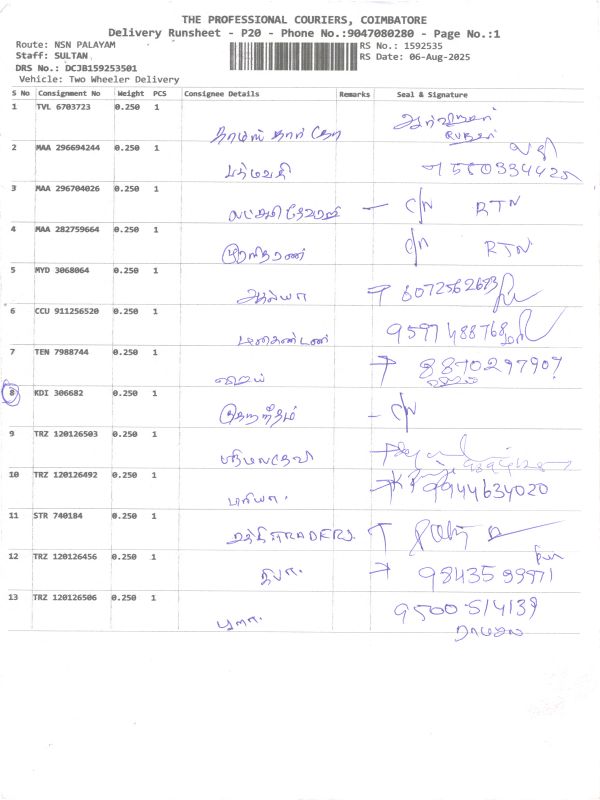 THE PROFESSIONAL COURIERS, COIMBATORE
Delivery Runsheet - P20 - Phone No.:9047080280 - Page No.:1
Route: NSN PALAYAM
Staff: SULTAN
DRS No.: DCJB159253501
Vehicle: Two Wheeler Delivery
RS No.: 1592535
RS Date: 06-Aug-2025
S No Consignment No Weight PCS Consignee Details Remarks Seal & Signature
1 TVL 6703723 0.250 1
2 MAA 296694244 0.250 1 பத்மவதி
3 MAA 296704026 0.250 1 லட்சுமி தேவராஜ் — C/N RTN
4 MAA 282759664 0.250 1 முரளிதரண் C/N RTN
5 MYD 3068064 0.250 1 8072562673
6 CCU 911256520 0.250 1 மணிகண்டன் 9597488768
7 TEN 7988744 0.250 1 8870297907
8 KDI 306682 0.250 1 — C/N
9 TRZ 120126503 0.250 1 பரிமலாதேவி
10 TRZ 120126492 0.250 1 மரியா. 9944634020
11 STR 740184 0.250 1 சக்தி TRADERS.
12 TRZ 120126456 0.250 1 தீபா. 9843599971
13 TRZ 120126506 0.250 1 9500514139